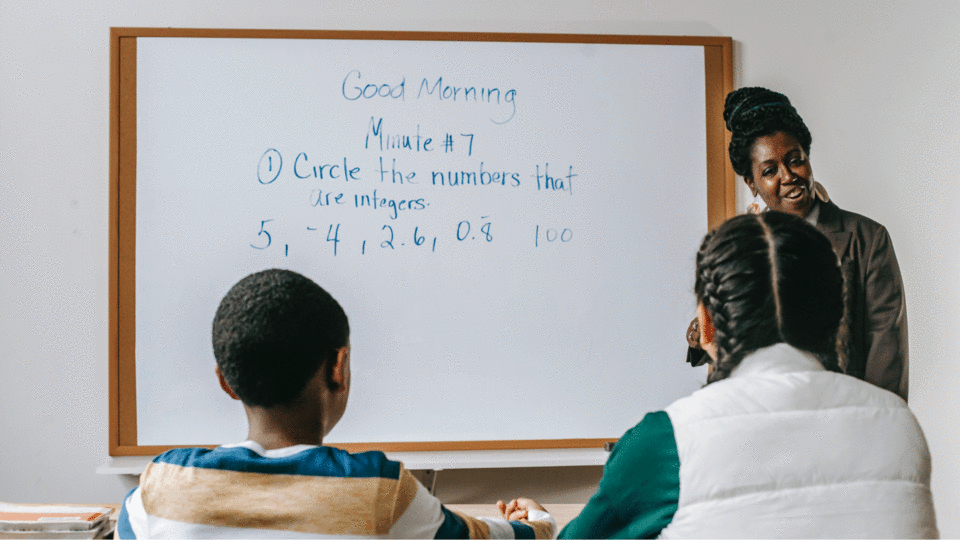 Good Morning
Minute #7
① Circle the numbers that
are integers.
5, -4, 2.6, 0.8̅ 100